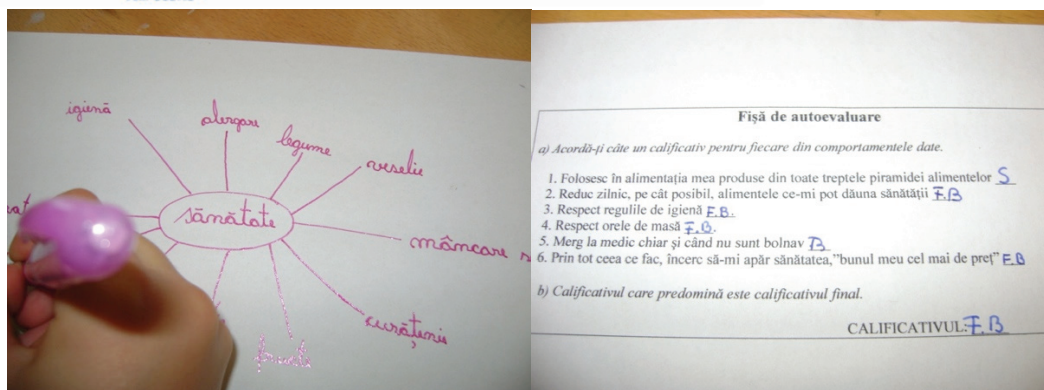 igienă
alergare
legume
veselie
sănătate
mâncare
curățenie
fructe
Fișă de autoevaluare
a) Acordă-ți câte un calificativ pentru fiecare din comportamentele date.
1. Folosesc în alimentația mea produse din toate treptele piramidei alimentelor S
2. Reduc zilnic, pe cât posibil, alimentele ce-mi pot dăuna sănătății F.B
3. Respect regulile de igienă F.B.
4. Respect orele de masă F.B.
5. Merg la medic chiar și când nu sunt bolnav B
6. Prin tot ceea ce fac, încerc să-mi apăr sănătatea,"bunul meu cel mai de preț" F.B
b) Calificativul care predomină este calificativul final.
CALIFICATIVUL:F.B